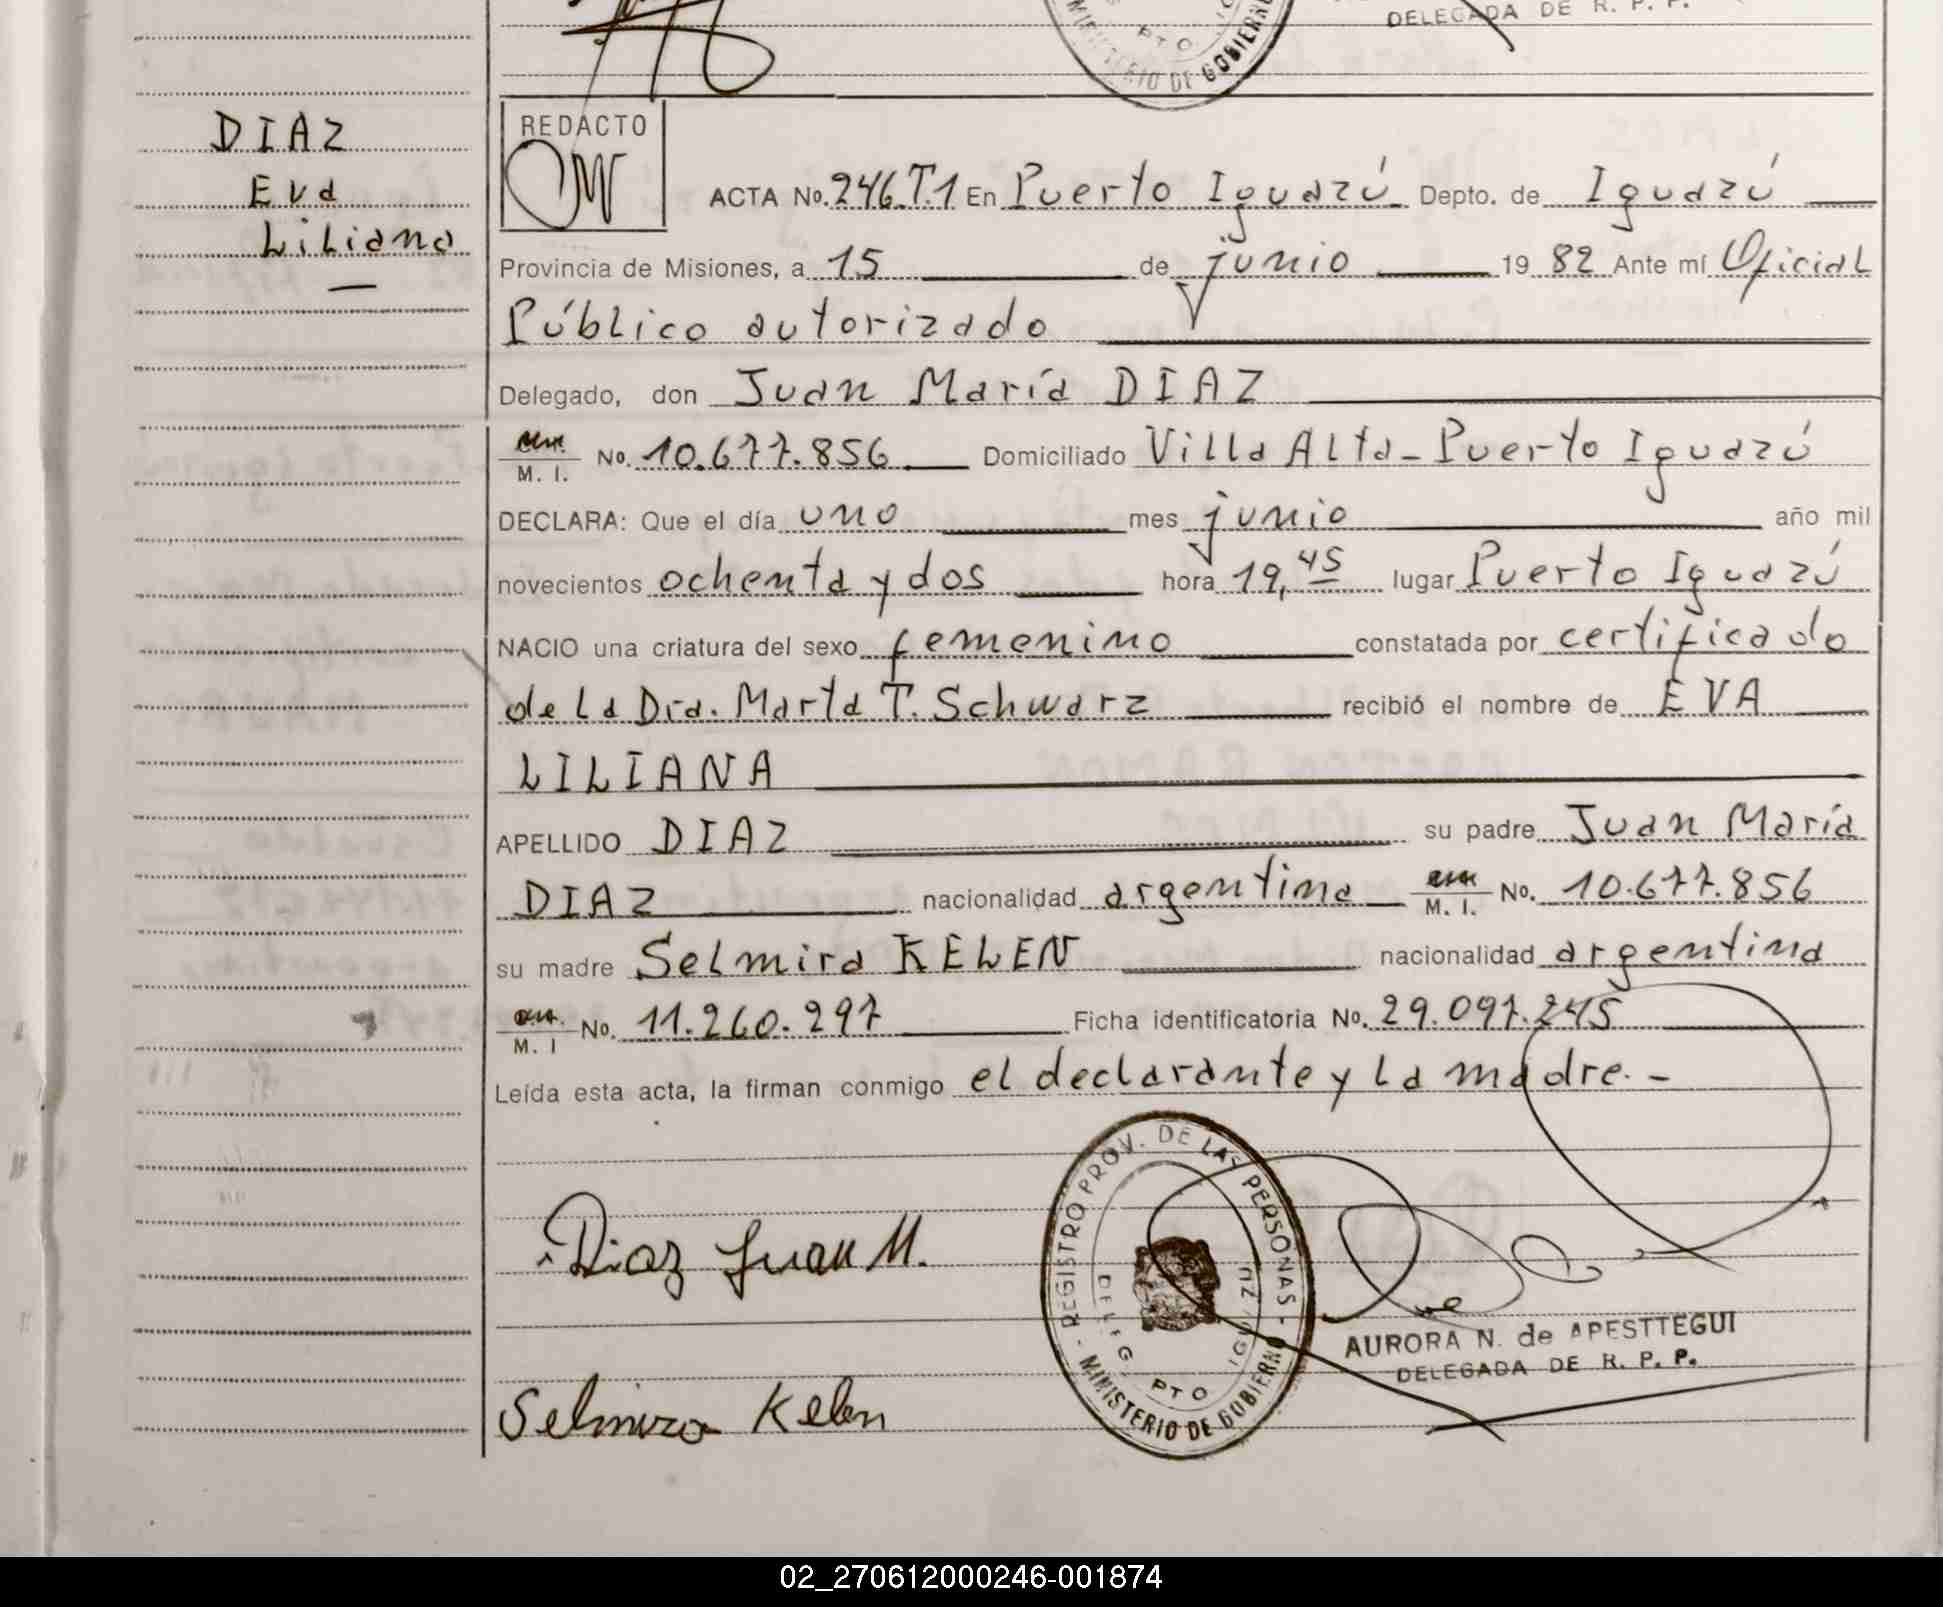 DELEGADA DE R. P. P.
MINISTERIO DE GOBIERNO
PTO
DIAZ
Eva
Liliana
REDACTO
ACTA No. 246.T.1 En Puerto Iguazú Depto. de Iguazú
Provincia de Misiones, a 15 de junio 19 82 Ante mí Oficial
Público autorizado
Delegado, don Juan María DIAZ
M. I. No. 10.677.856 Domiciliado Villa Alta - Puerto Iguazú
DECLARA: Que el día uno mes junio año mil
novecientos ochenta y dos hora 19,45 lugar Puerto Iguazú
NACIO una criatura del sexo femenino constatada por certificado
de la Dra. Marta T. Schwarz recibió el nombre de EVA
LILIANA
APELLIDO DIAZ su padre Juan María
DIAZ nacionalidad argentina M. I. No. 10.677.856
su madre Selmira KELEN nacionalidad argentina
M. I No. 11.260.297 Ficha identificatoria No. 29.097.245
Leída esta acta, la firman conmigo el declarante y la madre. -
Diaz Juan M.
REGISTRO PROV. DE LAS PERSONAS - MINISTERIO DE GOBIERNO -
DELEG PTO IGUAZU
AURORA N. de APESTTEGUI
DELEGADA DE R. P. P.
Selmira Kelen
02_270612000246-001874